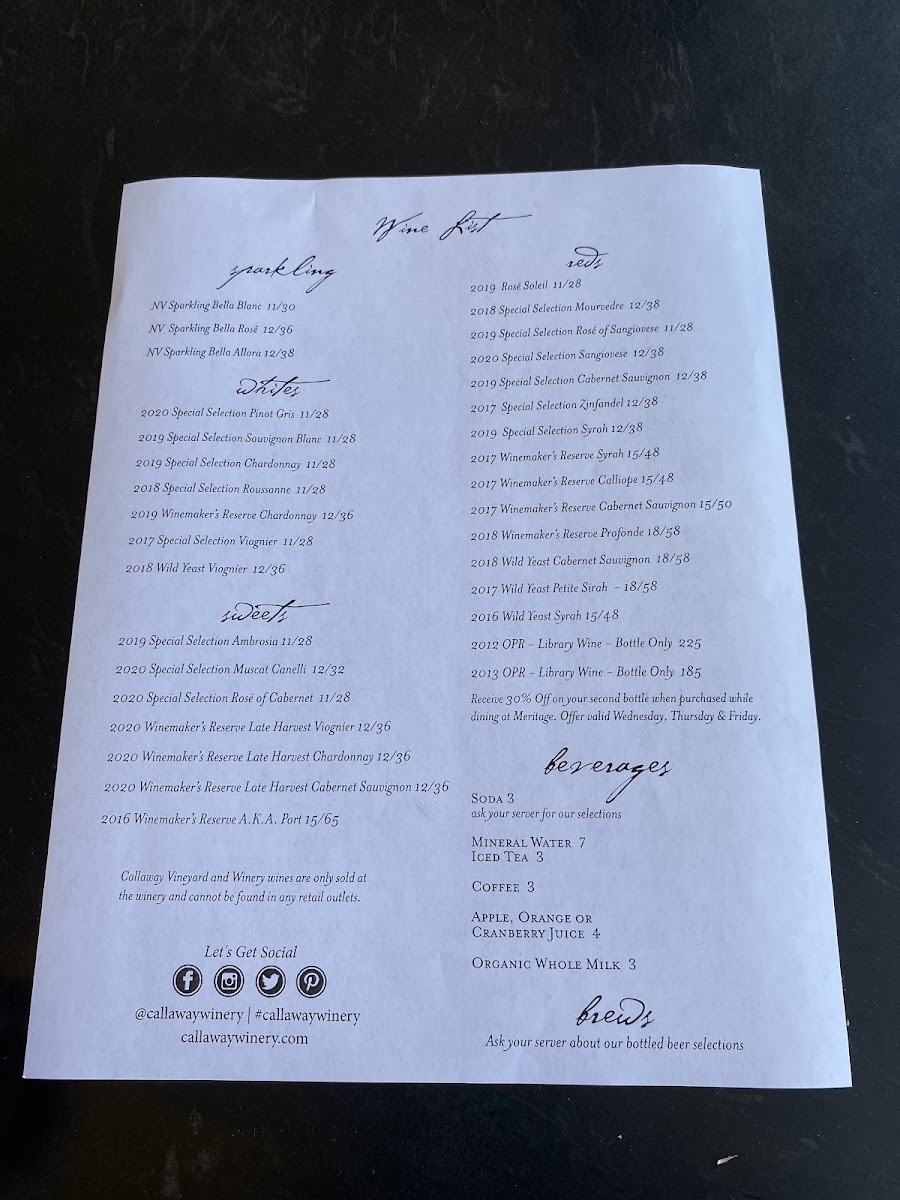 Wine List
sparkling
NV Sparkling Bella Blanc 11/30
NV Sparkling Bella Rosé 12/36
NV Sparkling Bella Allora 12/38
whites
2020 Special Selection Pinot Gris 11/28
2019 Special Selection Sauvignon Blanc 11/28
2019 Special Selection Chardonnay 11/28
2018 Special Selection Roussanne 11/28
2019 Winemaker's Reserve Chardonnay 12/36
2017 Special Selection Viognier 11/28
2018 Wild Yeast Viognier 12/36
sweets
2019 Special Selection Ambrosia 11/28
2020 Special Selection Muscat Canelli 12/32
2020 Special Selection Rosé of Cabernet 11/28
2020 Winemaker's Reserve Late Harvest Viognier 12/36
2020 Winemaker's Reserve Late Harvest Chardonnay 12/36
2020 Winemaker's Reserve Late Harvest Cabernet Sauvignon 12/36
2016 Winemaker's Reserve A.K.A. Port 15/65
Callaway Vineyard and Winery wines are only sold at
the winery and cannot be found in any retail outlets.
Let's Get Social
@callawaywinery | #callawaywinery
callawaywinery.com
reds
2019 Rosé Soleil 11/28
2018 Special Selection Mourvedre 12/38
2019 Special Selection Rosé of Sangiovese 11/28
2020 Special Selection Sangiovese 12/38
2019 Special Selection Cabernet Sauvignon 12/38
2017 Special Selection Zinfandel 12/38
2019 Special Selection Syrah 12/38
2017 Winemaker's Reserve Syrah 15/48
2017 Winemaker's Reserve Calliope 15/48
2017 Winemaker's Reserve Cabernet Sauvignon 15/50
2018 Winemaker's Reserve Profonde 18/58
2018 Wild Yeast Cabernet Sauvignon 18/58
2017 Wild Yeast Petite Sirah – 18/58
2016 Wild Yeast Syrah 15/48
2012 OPR – Library Wine – Bottle Only 225
2013 OPR – Library Wine – Bottle Only 185
Receive 30% Off on your second bottle when purchased while
dining at Meritage. Offer valid Wednesday, Thursday & Friday.
beverages
Soda 3
ask your server for our selections
Mineral Water 7
Iced Tea 3
Coffee 3
Apple, Orange or
Cranberry Juice 4
Organic Whole Milk 3
brews
Ask your server about our bottled beer selections